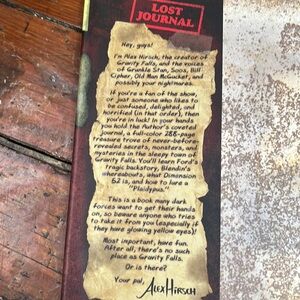 LOST
JOURNAL
Hey, guys!
I'm Alex Hirsch, the creator of
Gravity Falls, and the voices
of Grunkle Stan, Soos, Bill
Cipher, Old Man McGucket, and
possibly your nightmares.
If you're a fan of the show,
or just someone who likes to
be confused, delighted, and
horrified (in that order), then
you're in luck! In your hands
you hold the Author's coveted
journal, a full-color 288-page
treasure trove of never-before-
revealed secrets, monsters, and
mysteries in the sleepy town of
Gravity Falls. You'll learn Ford's
tragic backstory, Blendin's
whereabouts, what Dimension
52 is, and how to lure a
"Plaidypus."
This is a book many dark
forces want to get their hands
on, so beware anyone who tries
to take it from you (especially if
they have glowing yellow eyes)!
Most important, have fun.
After all, there's no such
place as Gravity Falls.
Or is there?
Your pal,
Alex Hirsch